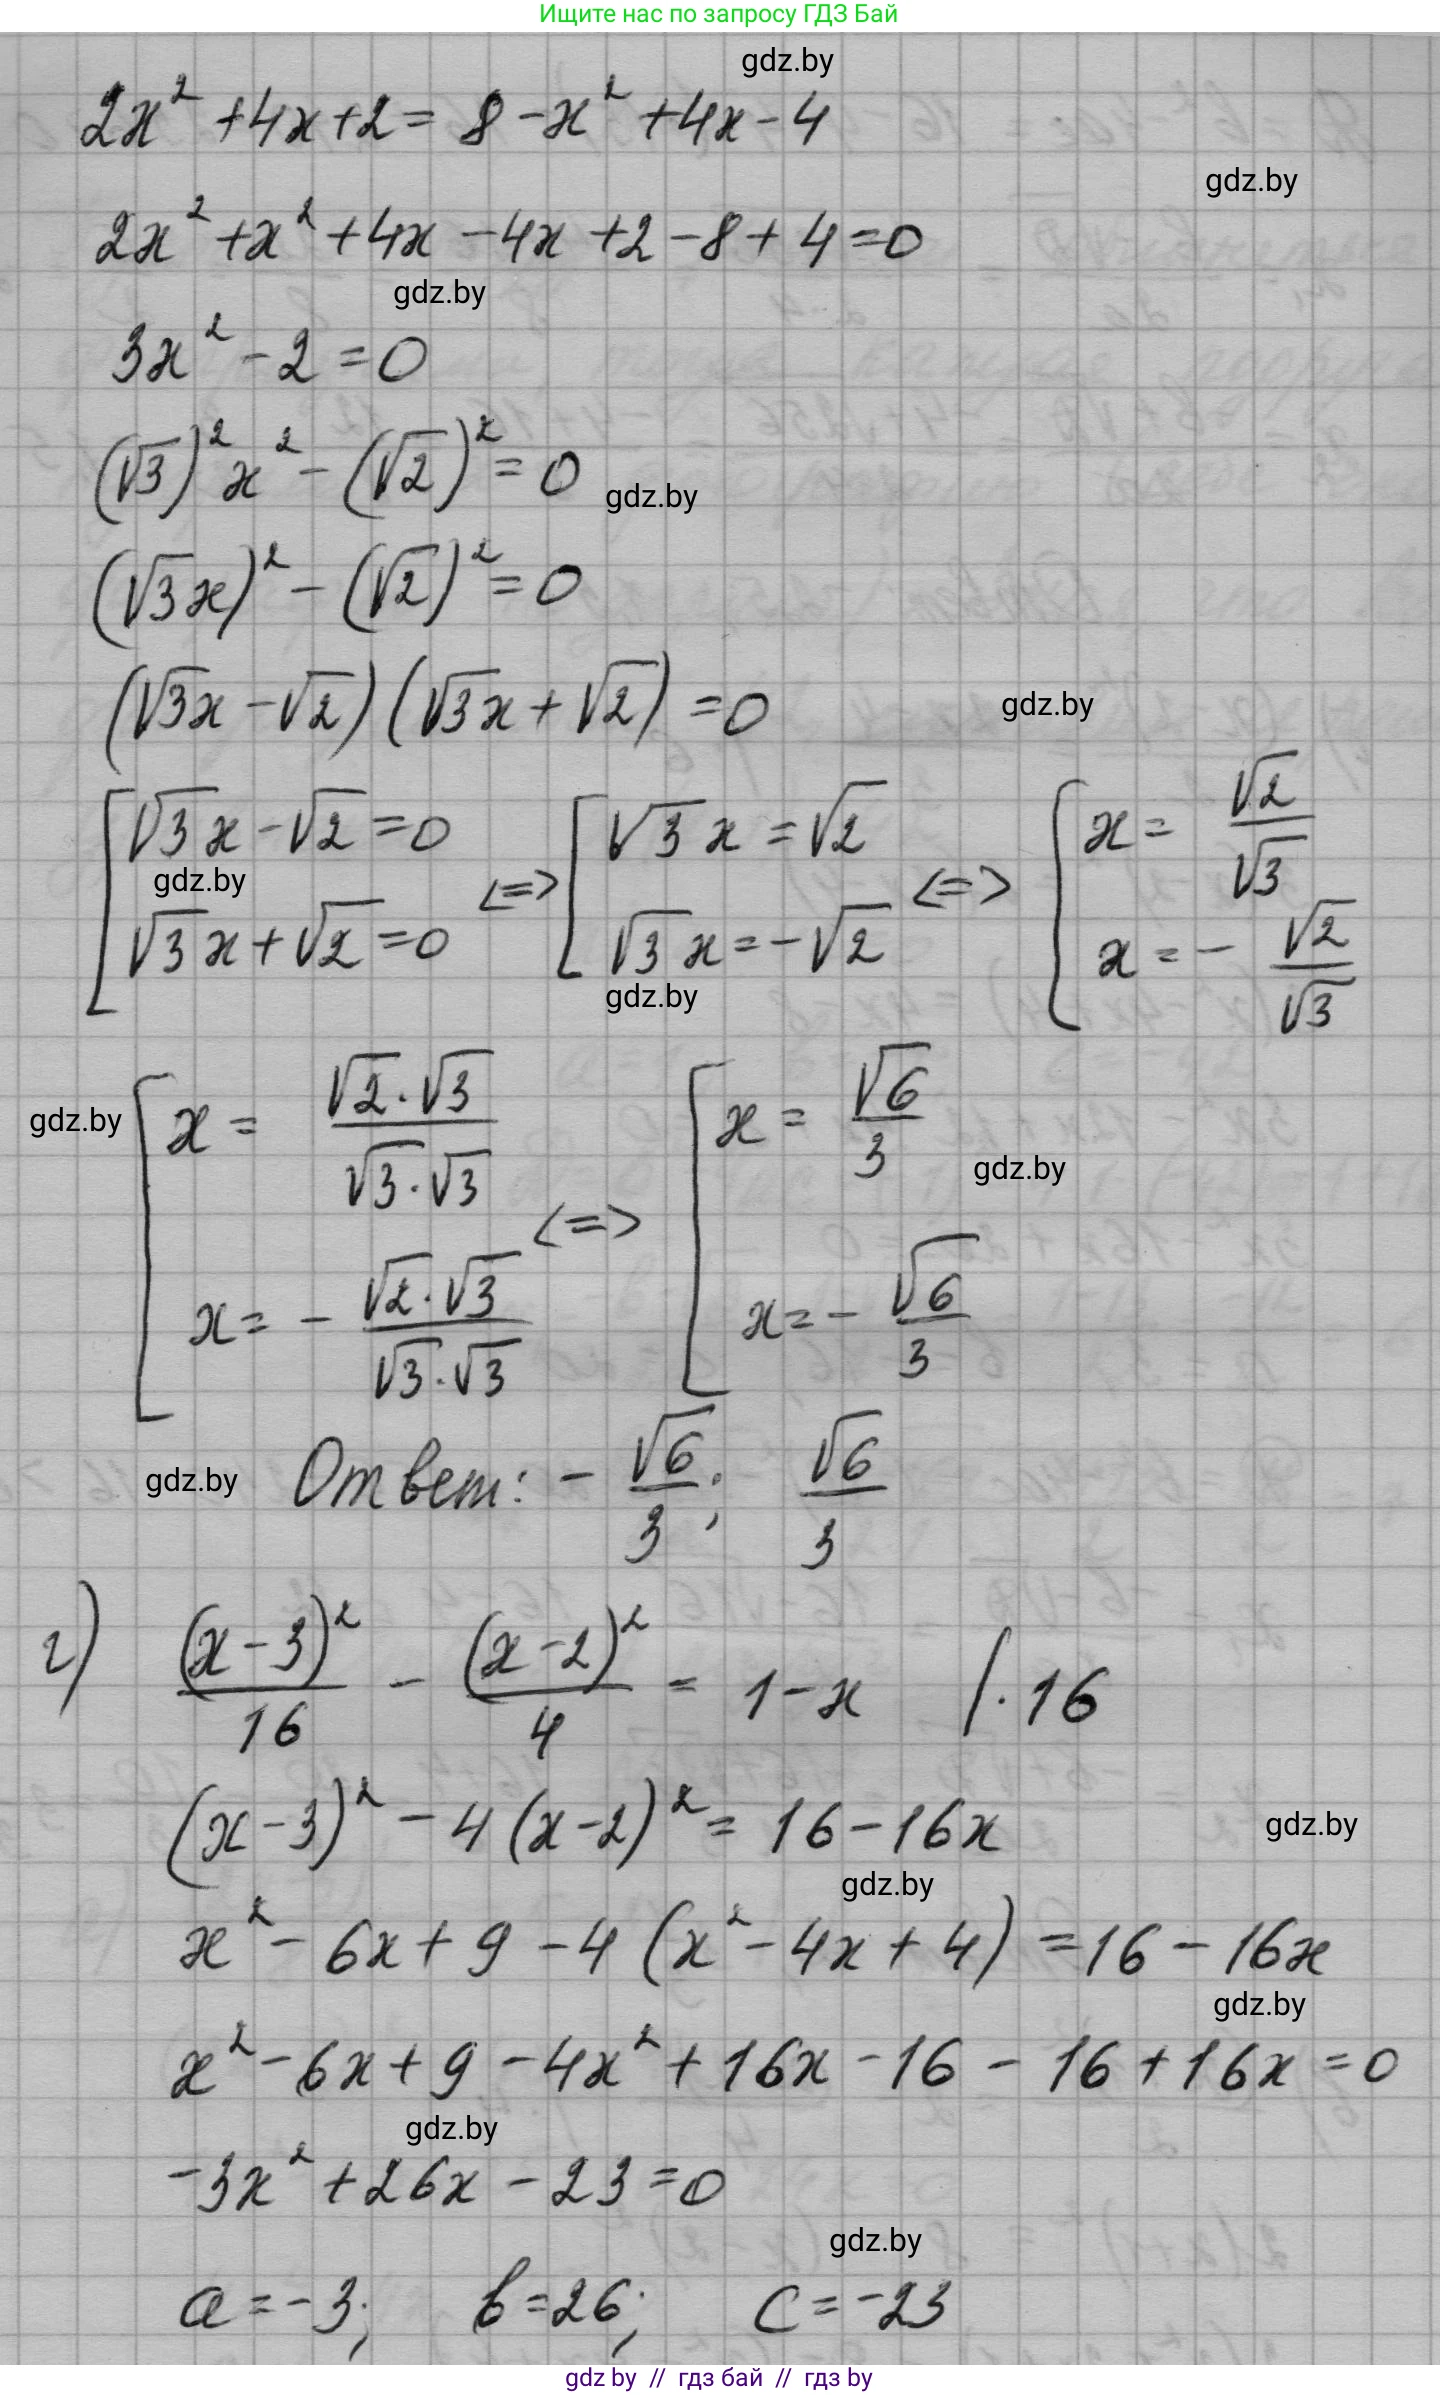 Ищите нас по запросу ГДЗ Бай
gdz.by
2x² + 4x + 2 = 8 - x² + 4x - 4
gdz.by
2x² + x² + 4x - 4x + 2 - 8 + 4 = 0
gdz.by
3x² - 2 = 0
(√3)² x² - (√2)² = 0
gdz.by
(√3x)² - (√2)² = 0
(√3x - √2)(√3x + √2) = 0
gdz.by
[√3x - √2 = 0 <=> [√3x = √2 <=> [x = √2/√3
gdz.by
√3x + √2 = 0 √3x = -√2 x = - √2/√3
gdz.by
gdz.by
[x = √2·√3/√3·√3 <=> [x = √6/3
gdz.by
x = - √2·√3/√3·√3 x = - √6/3
gdz.by
Ответ: - √6/3; √6/3
г) (x-3)²/16 - (x-2)²/4 = 1 - x /·16
(x-3)² - 4(x-2)² = 16 - 16x
gdz.by
gdz.by
x² - 6x + 9 - 4(x² - 4x + 4) = 16 - 16x
gdz.by
x² - 6x + 9 - 4x² + 16x - 16 - 16 + 16x = 0
gdz.by
-3x² + 26x - 23 = 0
gdz.by
a = -3; b = 26; c = -23
gdz by // гдз бай // гдз by